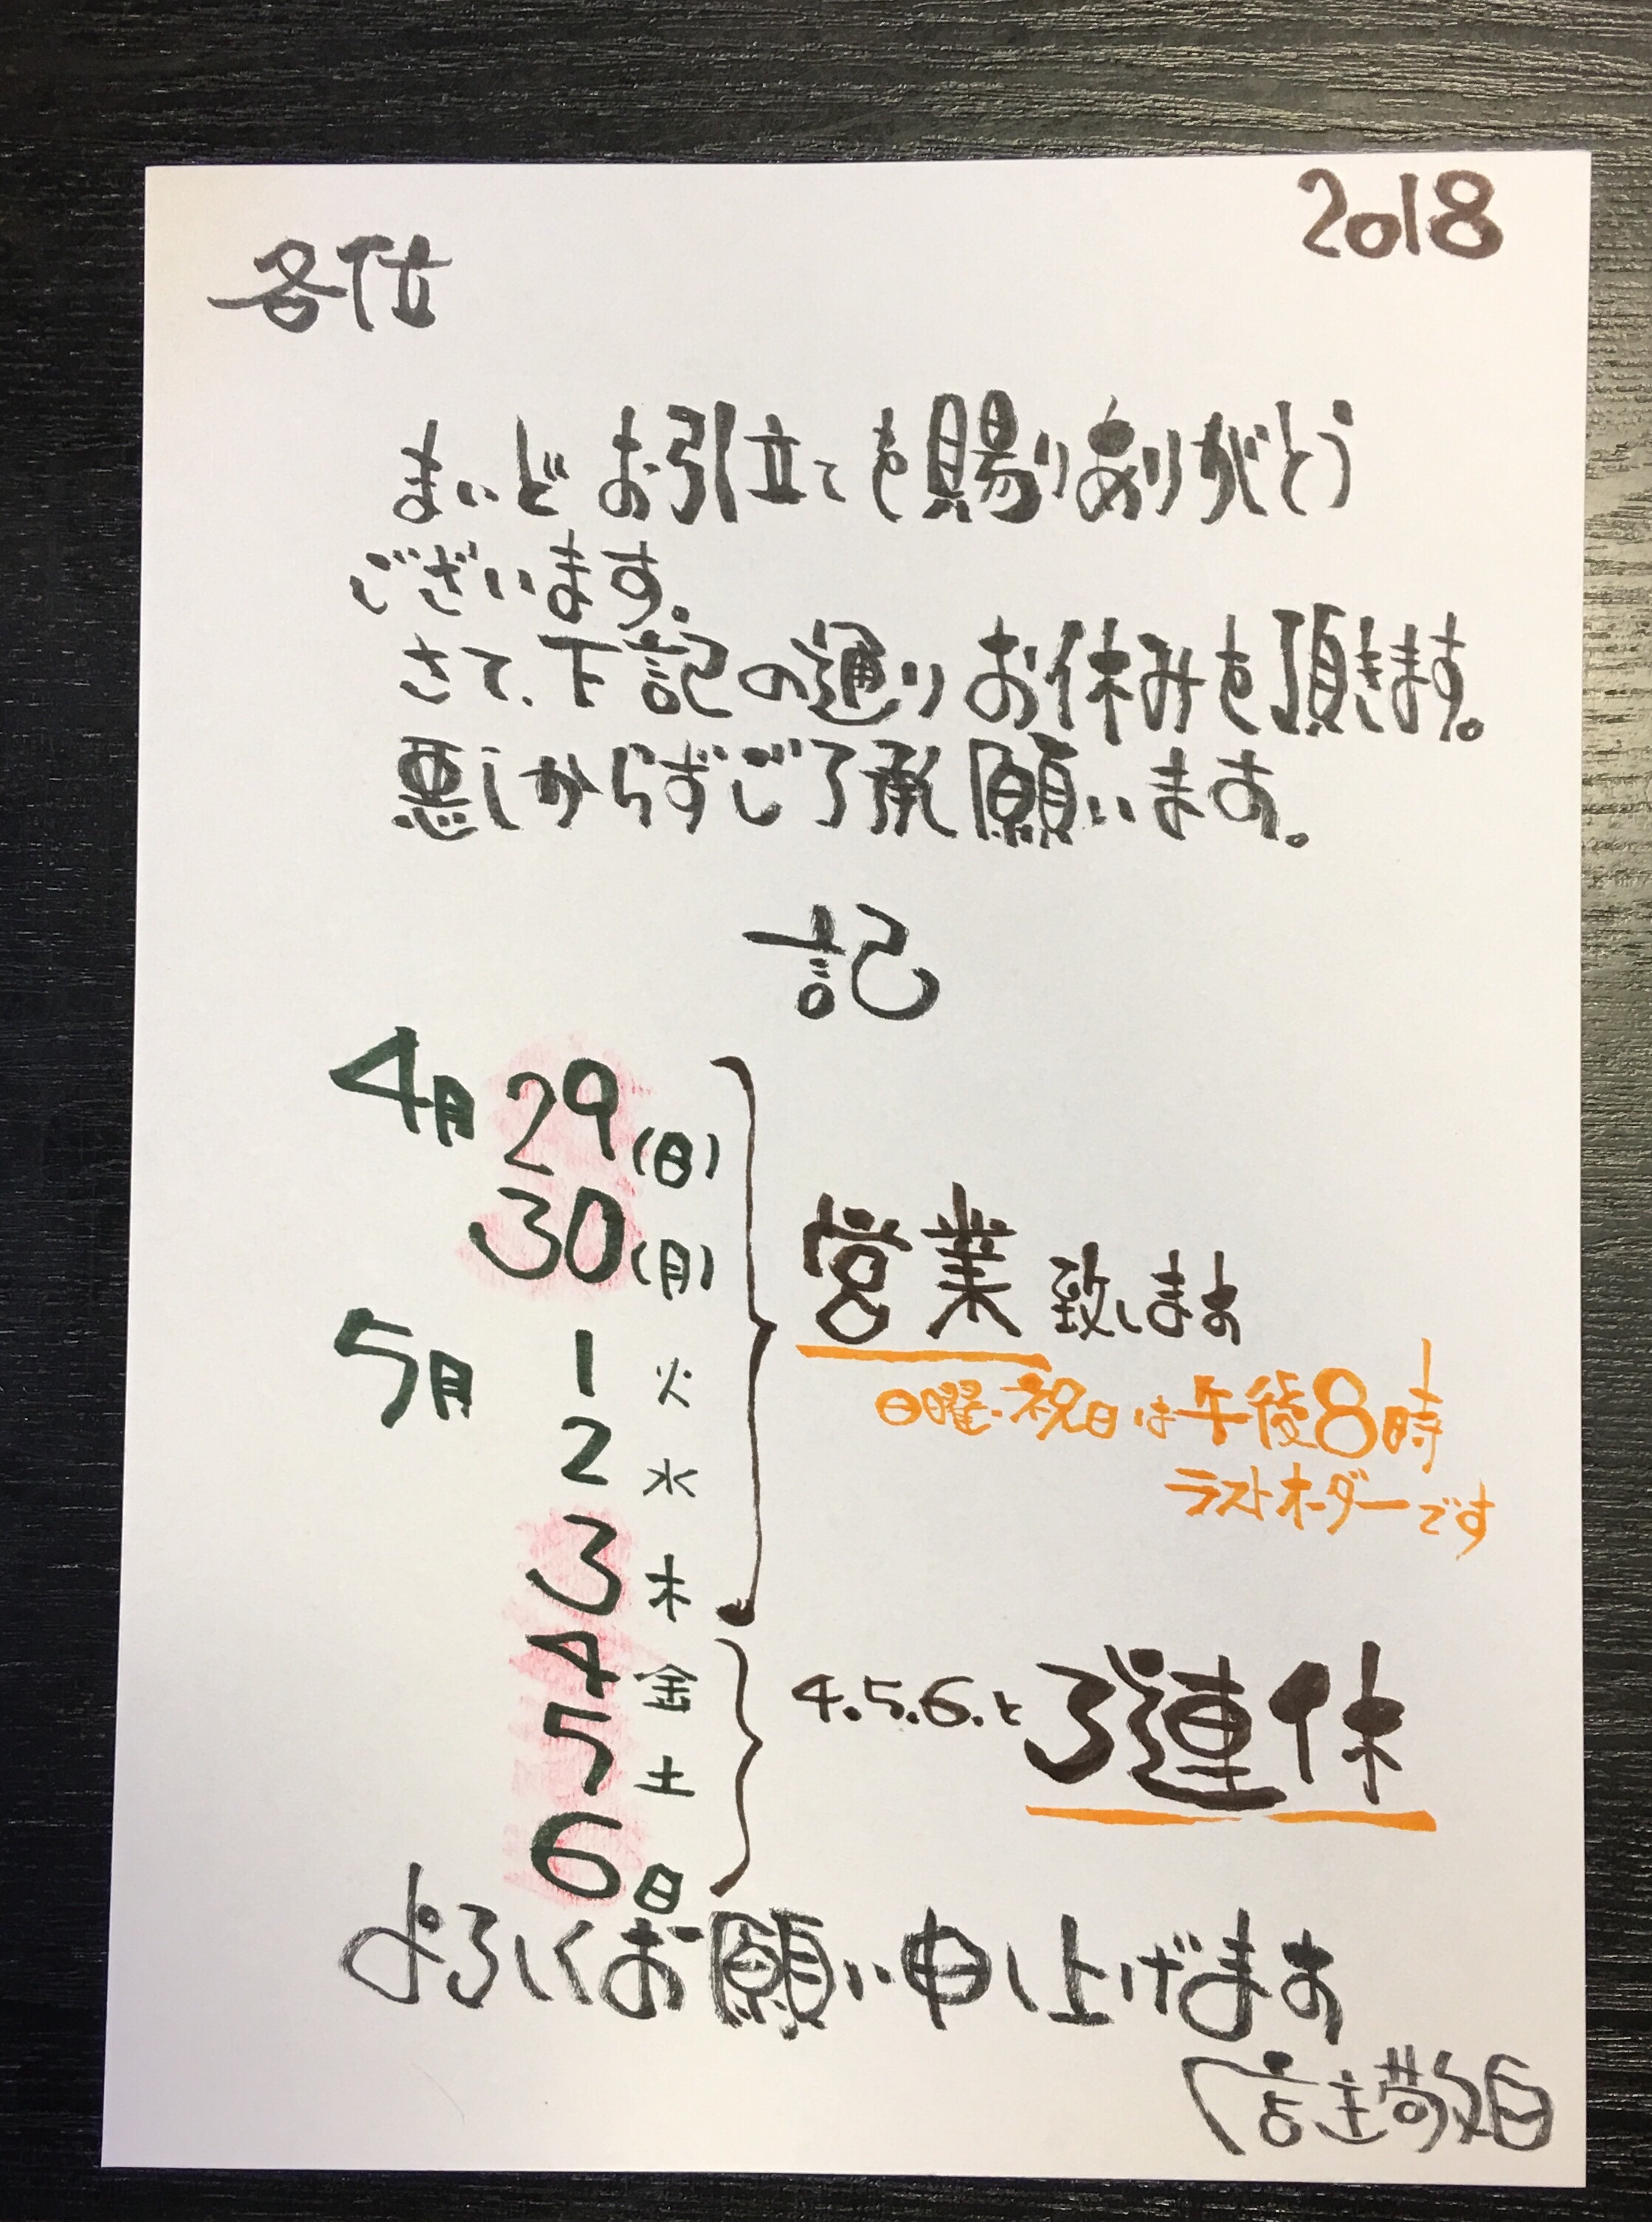 2018
各位
まいどお引立てを賜りありがとう
ございます。
さて、下記の通りお休みを頂きます。
悪しからずご了承願います。
記
4月29(日)
30(月)
5月 1 火
2 水
3 木
営業致します
日曜・祝日は午後8時
ラストオーダーです
4 金
5 土
6 日
4.5.6.と3連休
よろしくお願い申し上げます
店主敬白